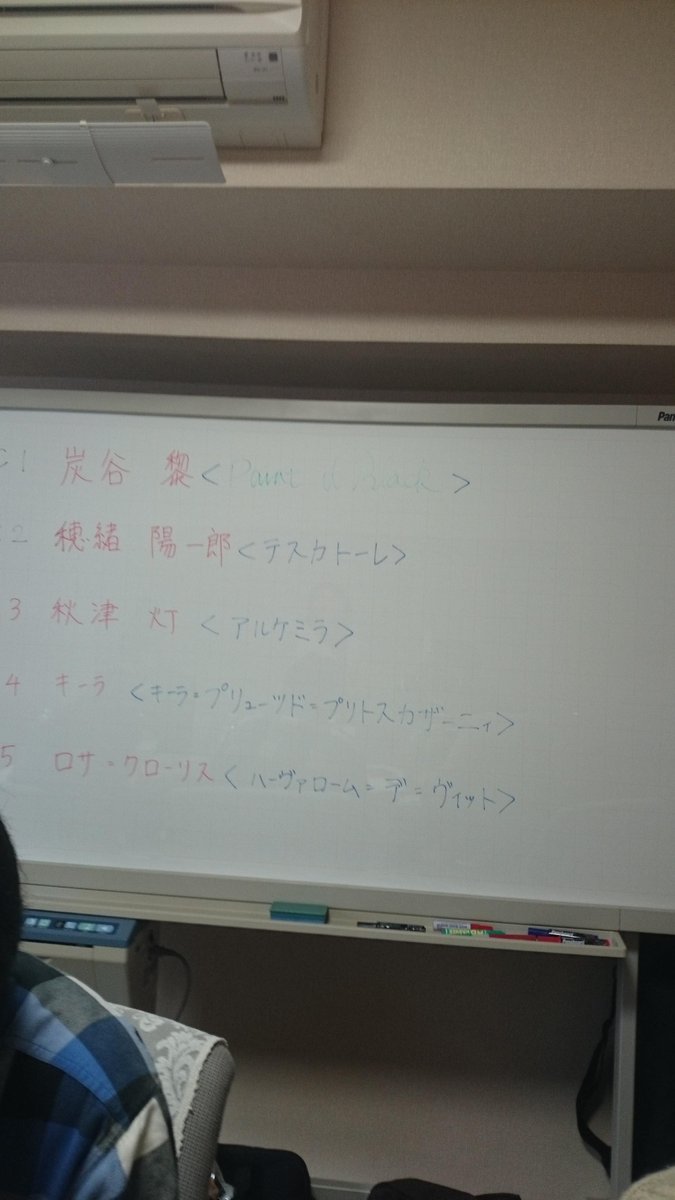 Pan
C1 炭谷 黎 <Paint it Black>
2 穂緒 陽一郎 <テスカトーレ>
3 秋津 灯 <アルケミラ>
4 キーラ <キーラ=プリューツド=プリトスカザーニィ>
5 ロサ=クローリス <ハーヴァローム=デ=ヴィット>